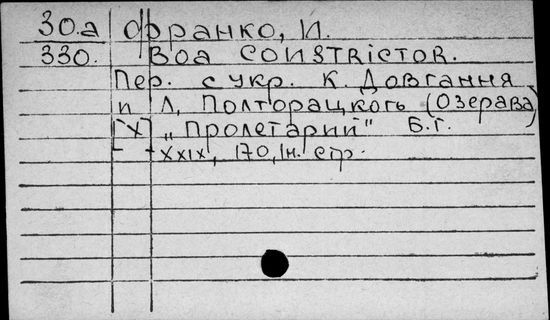 30.а Франко, И.
330. Boa constrictor.
Пер. с укр. К. Довгання
и Л. Полторацкогь (Озерава)
[X] „Пролетарий" Б.Г.
XXIX, 170, Iн. стр.